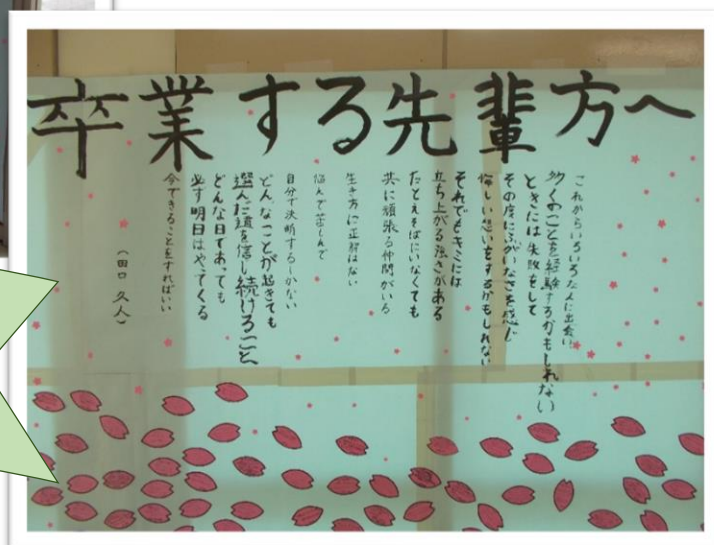 卒業する先輩方へ
これからいろいろな人に出会い
多くのことを経験するかもしれない
ときには失敗をして
その度にふがいなさを感じ
悔しい想いをするかもしれない
それでもキミには
立ち上がる強さがある
たとえそばにいなくても
共に頑張る仲間がいる
生き方に正解はない
悩んで苦しんで
自分で決明するしかない
どんなことが起きても
選んだ道を信じ続けること
どんな日であっても
必ず明日はやてくる
今できることをすればいい
(田口 久人)